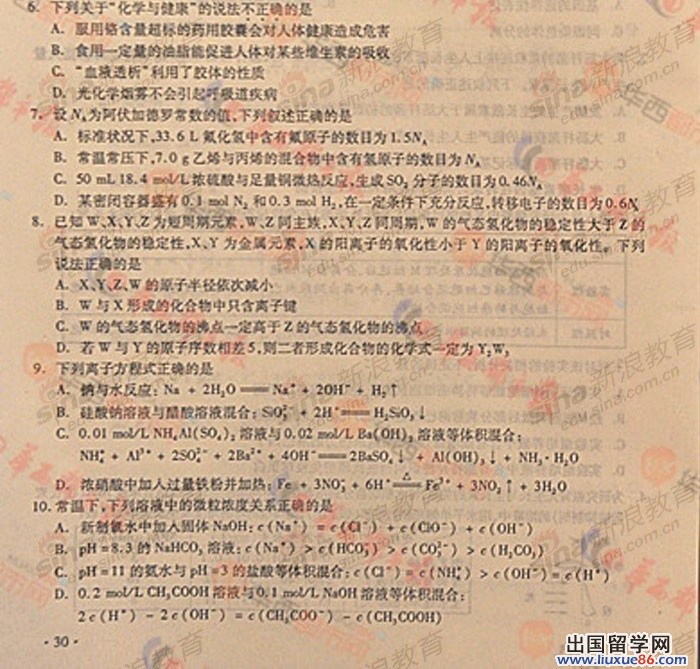 6. 下列关于“化学与健康”的说法不正确的是
A. 服用铬含量超标的药用胶囊会对人体健康造成危害
B. 食用一定量的油脂能促进人体对某些维生素的吸收
C. “血液透析”利用了胶体的性质
D. 光化学烟雾不会引起呼吸道疾病
7. 设NA为阿伏加德罗常数的值,下列叙述正确的是
A. 标准状况下,33.6 L氟化氢中含有氟原子的数目为1.5NA
B. 常温常压下,7.0 g乙烯与丙烯的混合物中含有氢原子的数目为NA
C. 50 mL 18.4 mol/L浓硫酸与足量铜微热反应,生成SO2分子的数目为0.46NA
D. 某密闭容器盛有0.1 mol N2和0.3 mol H2,在一定条件下充分反应,转移电子的数目为0.6NA
8. 已知W、X、Y、Z为短周期元素,W、Z同主族,X、Y、Z同周期,W的气态氢化物的稳定性大于Z的
气态氢化物的稳定性,X、Y为金属元素,X的阳离子的氧化性小于Y的阳离子的氧化性。下列
说法正确的是
A. X、Y、Z、W的原子半径依次减小
B. W与X形成的化合物中只含离子键
C. W的气态氢化物的沸点一定高于Z的气态氢化物的沸点
D. 若W与Y的原子序数相差5,则二者形成化合物的化学式一定为Y2W3
9. 下列离子方程式正确的是
A. 钠与水反应: Na + 2H2O ═ Na+ + 2OH- + H2↑
B. 硅酸钠溶液与醋酸溶液混合: SiO3^2- + 2H+ ═ H2SiO3↓
C. 0.01 mol/L NH4Al(SO4)2溶液与0.02 mol/L Ba(OH)2溶液等体积混合:
NH4+ + Al3+ + 2SO4^2- + 2Ba2+ + 4OH- ═ 2BaSO4↓ + Al(OH)3↓ + NH3·H2O
D. 浓硝酸中加入过量铁粉并加热: Fe + 3NO3- + 6H+ ═△═ Fe3+ + 3NO2↑ + 3H2O
10. 常温下,下列溶液中的微粒浓度关系正确的是
A. 新制氯水中加入固体NaOH: c(Na+) = c(Cl-) + c(ClO-) + c(OH-)
B. pH=8.3的NaHCO3溶液: c(Na+) > c(HCO3-) > c(CO3^2-) > c(H2CO3)
C. pH=11的氨水与pH=3的盐酸等体积混合: c(Cl-) = c(NH4+) > c(OH-) = c(H+)
D. 0.2 mol/L CH3COOH溶液与0.1 mol/L NaOH溶液等体积混合:
2c(H+) - 2c(OH-) = c(CH3COO-) - c(CH3COOH)
· 30 ·
新浪教育
edu.sina.com.cn
出国留学网
www.liuxue86.com